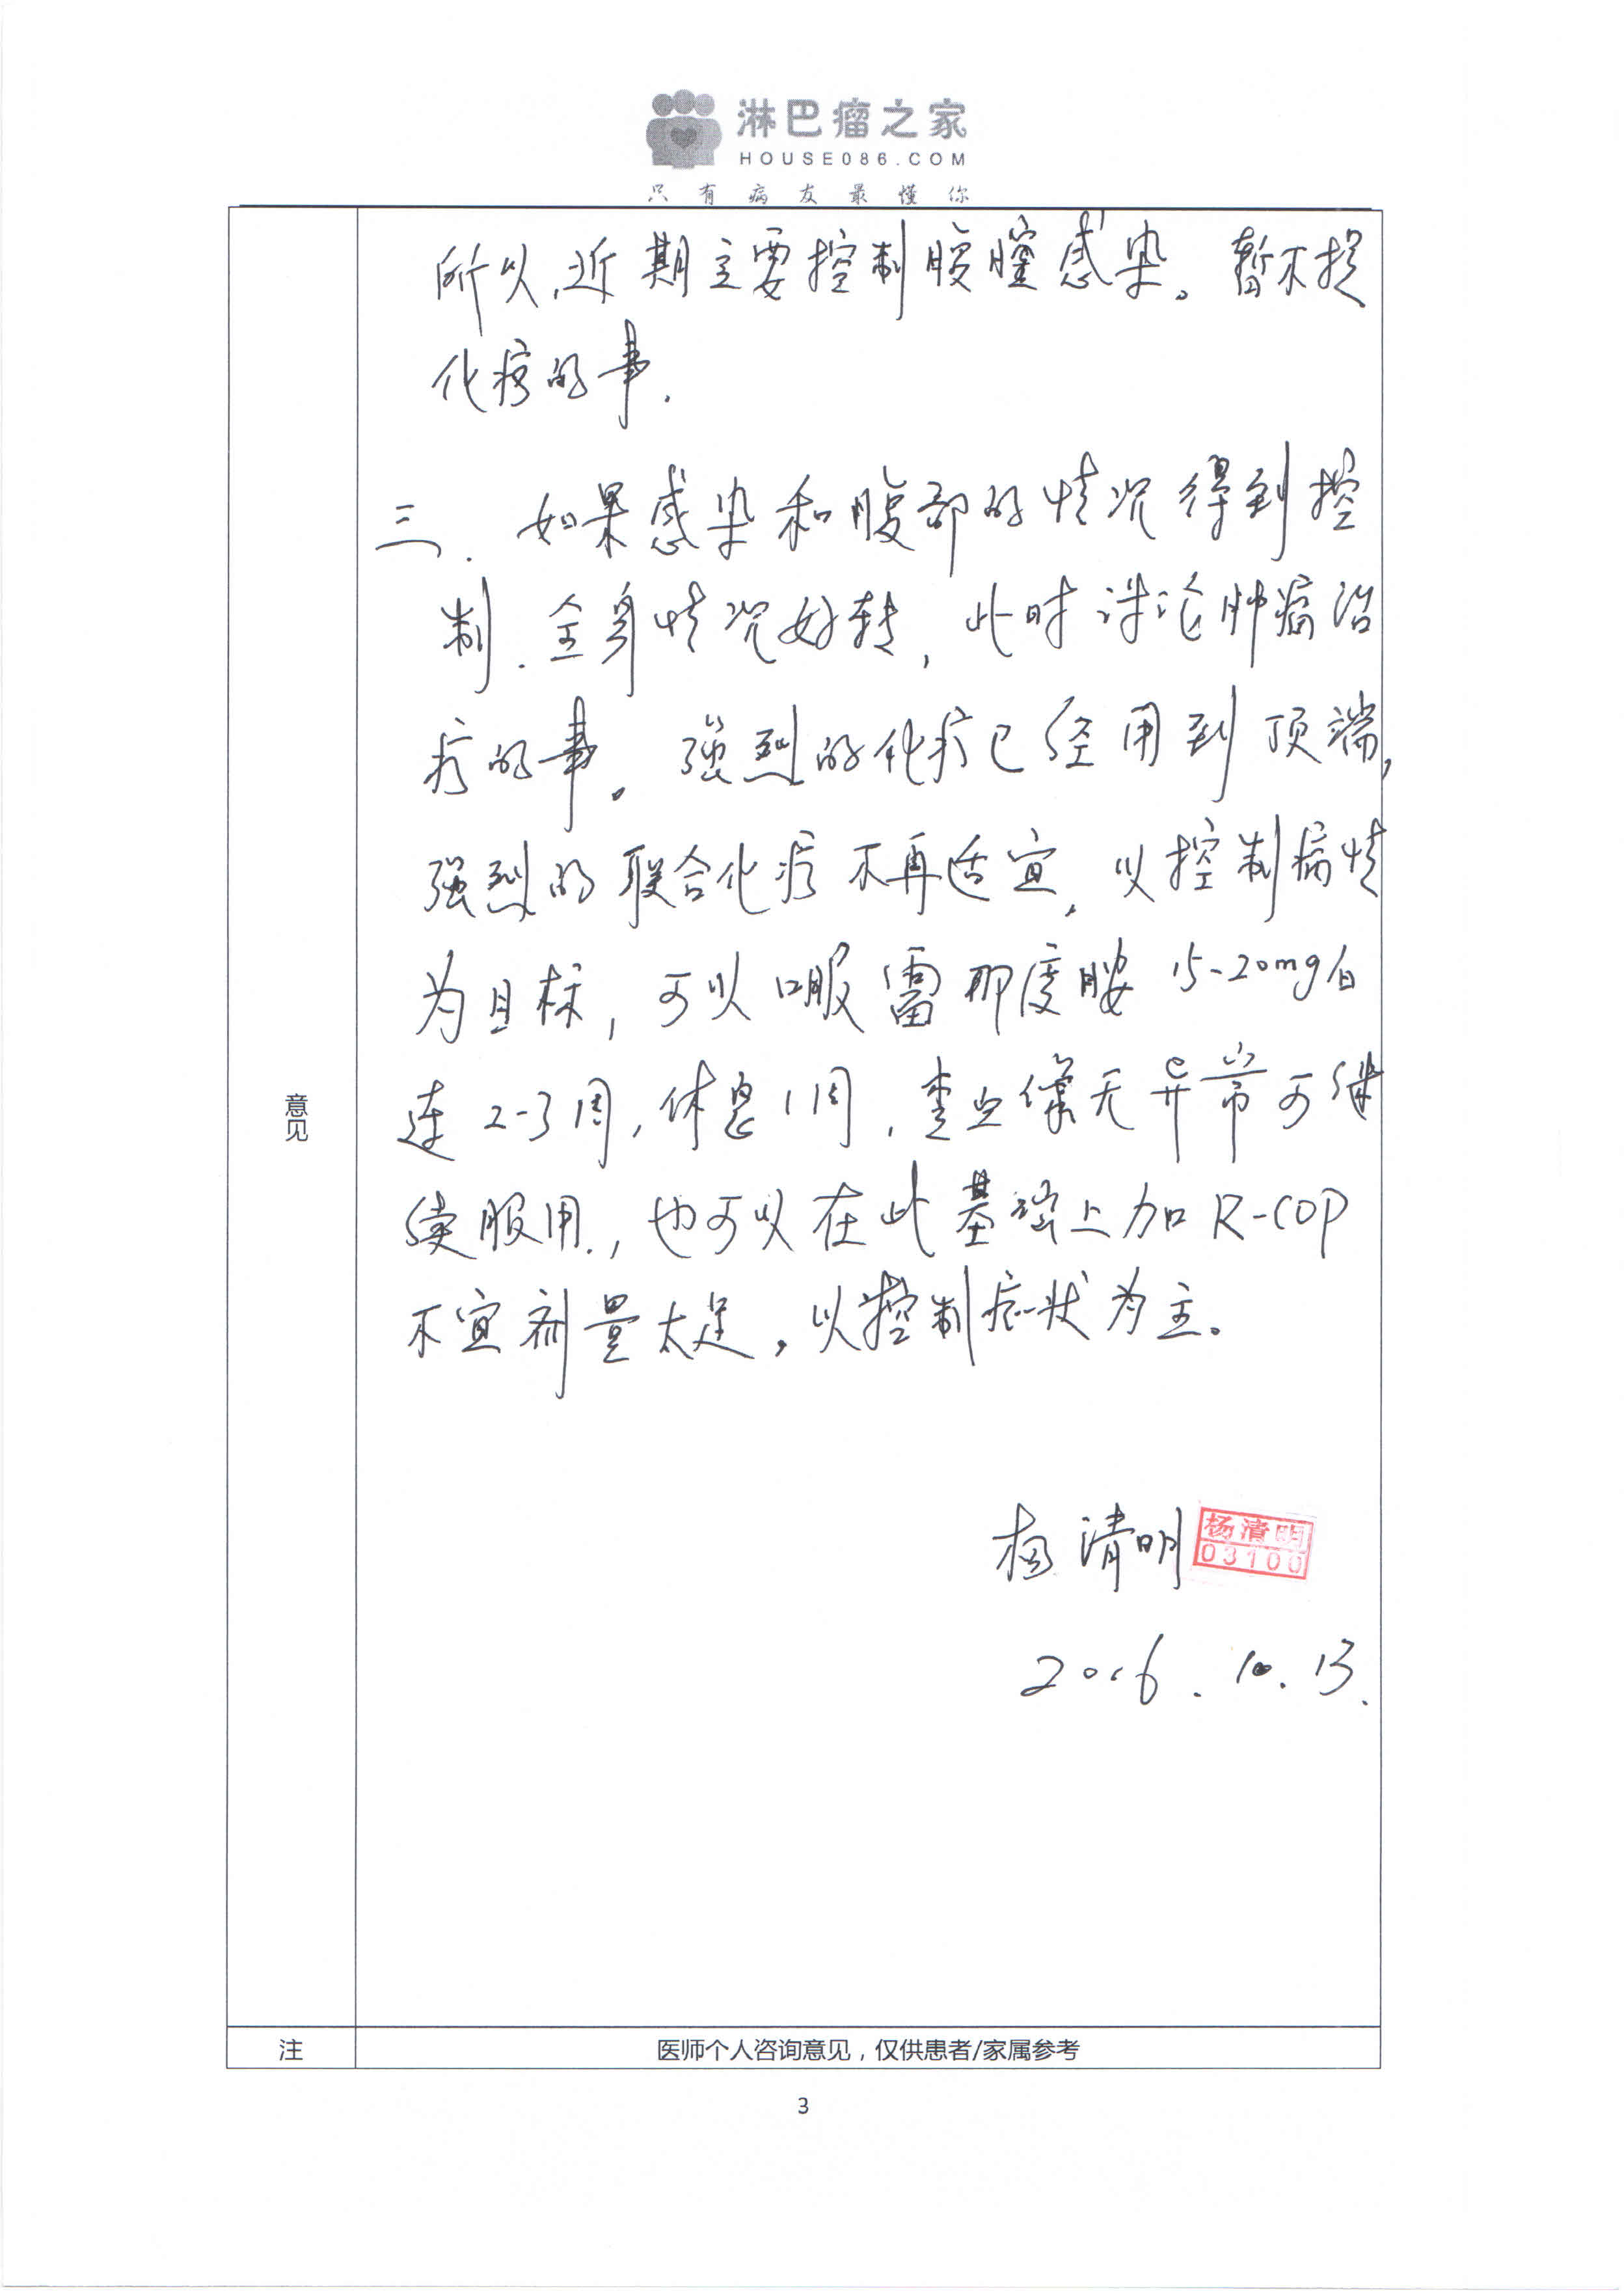 淋巴瘤之家
HOUSE086.COM
只有病友最懂你
所以,近期主要控制腹腔感染。暂不提
化疗的事.
三. 如果感染和腹部的情况得到控
制.全身情况好转,此时讨论肿瘤治
疗的事。强烈的化疗已经用到顶端,
强烈的联合化疗不再适宜,以控制病情
为目标,可以口服雷那度胺 15-20mg/日
连2-3周,休息1周,查血像无异常可继
续服用.,也可以在此基础上加R-COP
不宜剂量太足,以控制症状为主。
意见
杨清明
杨清明
03100
2016.10.13.
注
医师个人咨询意见,仅供患者/家属参考
3